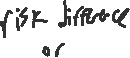 risk difference
or